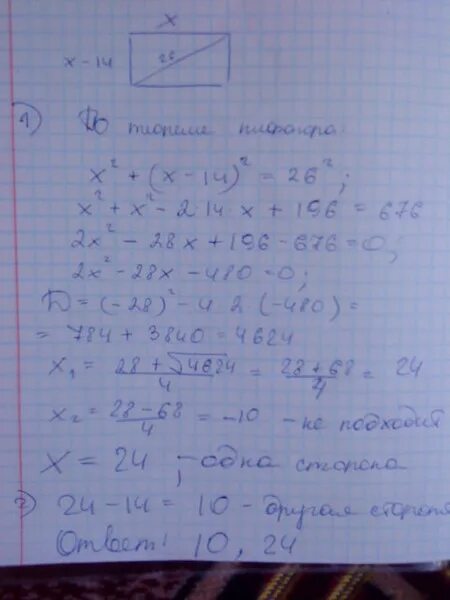 x
x - 14
26
1) По теореме пифагора:
x² + (x - 14)² = 26²;
x² + x² - 2·14·x + 196 = 676
2x² - 28x + 196 - 676 = 0;
2x² - 28x - 480 = 0;
D = (-28)² - 4·2·(-480) =
= 784 + 3840 = 4624
x₁ = (28 + √4624)/4 = (28 + 68)/4 = 24
x₂ = (28 - 68)/4 = -10 - не подходит
x = 24 ; - одна сторона
2) 24 - 14 = 10 - другая сторона
Ответ: 10, 24